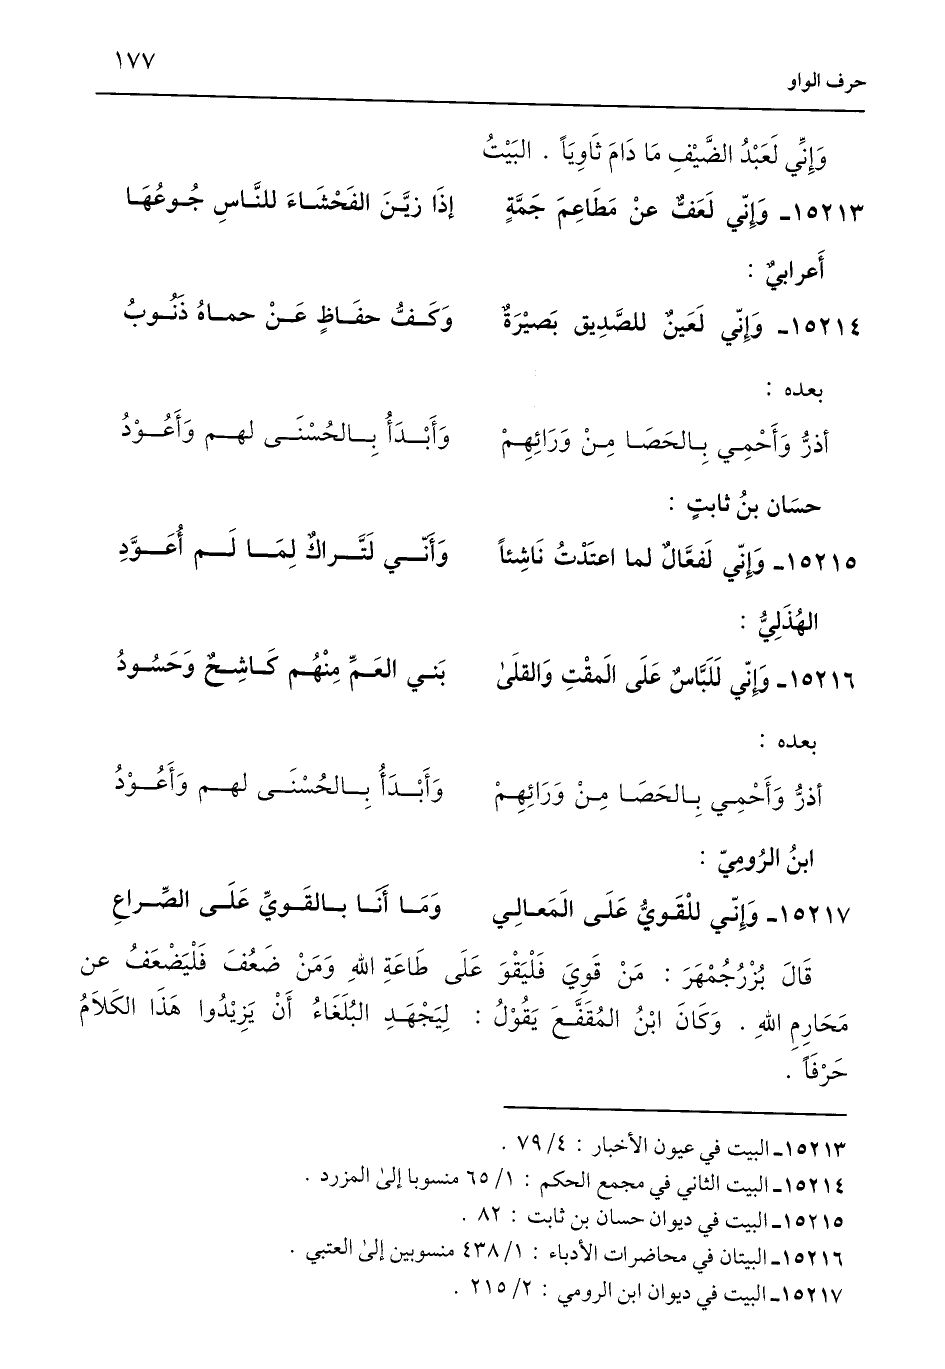 ١٧٧
حرف الواو
وَإِنِّي لَعَبْدُ الضَّيْفِ مَا دَامَ ثَاوِيَاً . البَيْتُ
١٥٢١٣ـ وَإِنّي لَعَفٌّ عنْ مَطَاعِمَ جَمَّةٍ إذَا زيَّنَ الفَحْشَاءَ للنَّاسِ جُوعُهَا
أَعرابيٌ :
١٥٢١٤ـ وَإِنّي لَعَينٌ للصَّدِيق بَصيْرَةٌ وَكَفُّ حفَاظٍ عَنْ حماهُ ذَنُوبُ
بعده :
أذبُّ وَأَحْمِي بِالحَصَا مِنْ وَرَائِهِمْ وَأَبْدَأُ بِالحُسْنَى لهم وَأَعُوْدُ
حسَان بنُ ثابتٍ :
١٥٢١٥ـ وَإِنّي لَفعَّالٌ لما اعتَدْتُ نَاشِئاً وَأَنّي لَتَّراكٌ لِمَا لَم أُعَوَّدِ
الهُذَلِيُّ :
١٥٢١٦ـ وَإِنّي لَلَبَّاسٌ عَلَى المقْتِ وَالقلَىٰ بَني العَمِّ مِنْهُم كَاشِحٌ وَحَسُودُ
بعده :
أذبُّ وَأَحْمِي بِالحَصَا مِنْ وَرَائِهِمْ وَأَبْدَأُ بِالحُسْنَى لهم وَأَعُوْدُ
ابنُ الرُومِيّ :
١٥٢١٧ـ وَإِنّي للْقَويُّ عَلَى المَعَالِي وَمَا أَنَا بالقَويِّ عَلَى الصِّراعِ
قَالَ بُزْرُجُمْهَرَ : مَنْ قَوِيَ فَلْيَقْوَ عَلَى طَاعَةِ اللهِ وَمَنْ ضَعُفَ فَلْيَضْعَفُ عن
مَحَارِمِ اللهِ . وَكَانَ ابْنُ المُقَفَّعِ يَقُوْلُ : لِيَجْهَدِ البُلَغَاءُ أَنْ يَزِيْدُوا هَذَا الكَلَامُ
حَرْفَاً .
١٥٢١٣ـ البيت في عيون الأخبار : ٤/ ٧٩ .
١٥٢١٤ـ البيت الثاني في مجمع الحكم : ١/ ٦٥ منسوبا إلىٰ المزرد .
١٥٢١٥ـ البيت في ديوان حسان بن ثابت : ٨٢ .
١٥٢١٦ـ البيتان في محاضرات الأدباء : ١/ ٤٣٨ منسوبين إلىٰ العتبي .
١٥٢١٧ـ البيت في ديوان ابن الرومي : ٢/ ٢١٥ .